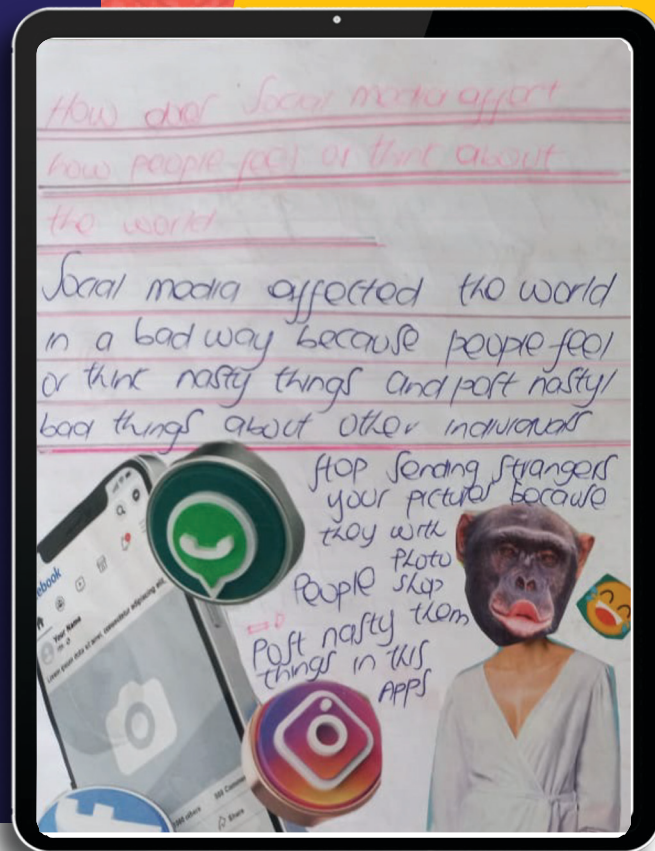 How does Social media affect
how people feel or think about
the world
Social media affected the world
in a bad way because people feel
or think nasty things and post nasty/
bad things about other individuals
Stop Sending Strangers
your pictures because
they with
Photo
Shop
them
People
Post nasty
things in this
Apps
ebook
Your Name
Lorem ipsum dolor sit amet, consectetur adipiscing elit,
Share